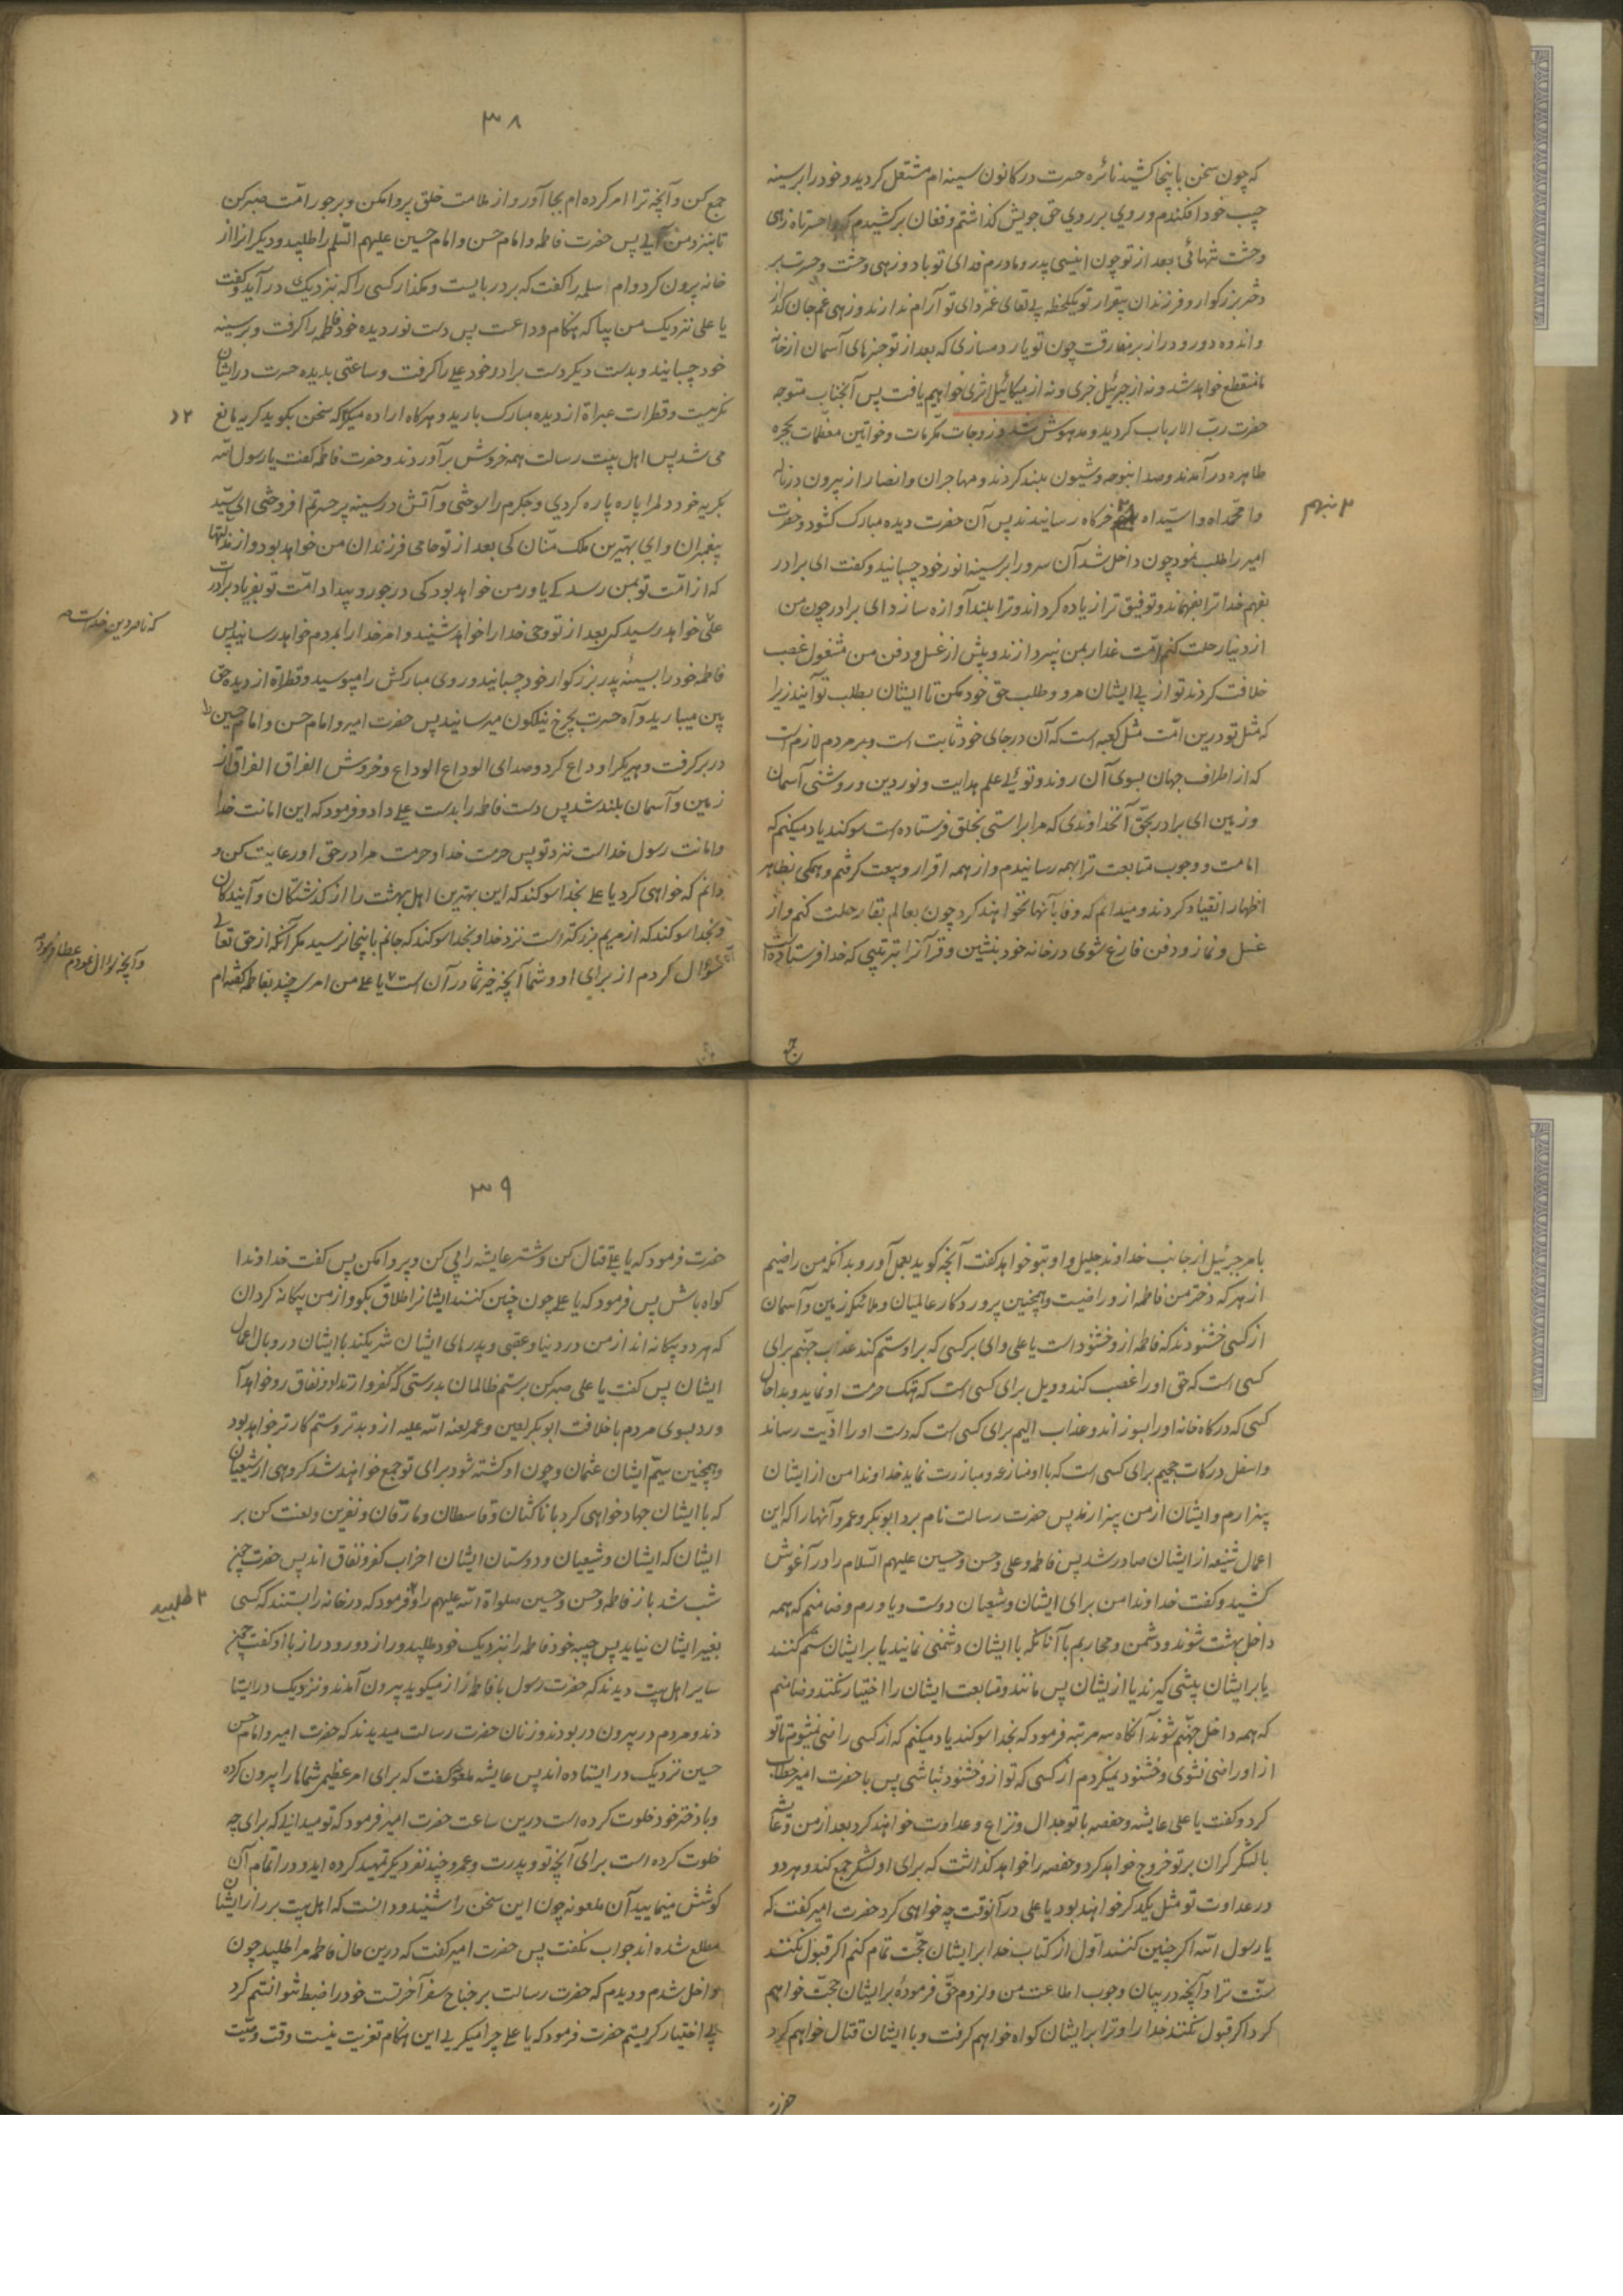 که چون سخن باینجا کشید نائره حسرت در کانون سینه ام مشتعل کردید و خود را بر سینه
چپ خود افکندم و روی بر روی حق جویش کذاشتم و فغان برکشیدم که واحسرتاه زهی
وحشت تنهائی بعد از تو چون انیسی پدر و مادرم فدای تو باد و زهی وحشت و حسرت بر
دختر بزرکوار و فرزندان بیقرار تو یکلحظه بی لقای غمزدای تو آرام ندارند و زهی غم جان کداز
و اندوه دور و دراز بر مفارقت چون تو یار دمسازی که بعد از تو خبرهای آسمان از خانه
ما منقطع خواهد شد و نه از جبرئیل خبری و نه از میکائیل اثری خواهیم یافت پس آنجناب متوجه
حضرت رب الارباب کردید و مدهوش شد و زوجات مکرمات و خواتین معظمات بحجره
طاهره در آمدند و صدا بنوحه و شیون بلند کردند و مهاجران و انصار از بیرون در ناله
وا محمداه وا سیداه خرکاه رسانیدند پس آن حضرت دیده مبارک کشود و حضرت
امیر را طلب نمود چون داخل شد آن سرور ابر سینه انور خود چسبانید و کفت ای برادر
بفهم خدا ترا بفهماند و توفیق ترا زیاده کرداند و ترا بلند آوازه سازد ای برادر چون من
از دنیا رحلت کنم امت غدار بمن نپردازند و پیش از غسل و دفن من مشغول غصب
خلافت کردند تو از پی ایشان مرو و طلب حق خود مکن تا ایشان بطلب تو آیند زیرا
که مثل تو درین امت مثل کعبه است که آن در جای خود ثابت است و بر مردم لازم است
که از اطراف جهان بسوی آن روند و توئی علم هدایت و نور دین و روشنی آسمان
و زمین ای برادر بحق آنخداوندی که مرا براستی بخلق فرستاده است سوکند یاد میکنم که
امامت و وجوب متابعت ترا بهمه رسانیدم و از همه اقرار و بیعت کرفتم و همکی بظاهر
اظهار انقیاد کردند و میدانم که وفا بآنها نخواهند کرد چون بعالم بقا رحلت کنم و از
غسل و نماز و دفن فارغ شوی در خانه خود بنشین و قرآنرا بترتیبی که خدا فرستاده است
جمع
۳۸
جمع کن و آنچه ترا امر کرده ام بجا آور و از ملامت خلق پروا مکن و بر جور امت صبر کن
تا بنزد من آیی پس حضرت فاطمه و امام حسن و امام حسین علیهم السلم را طلبید و دیکرانرا از
خانه بیرون کرد و ام سلمه را کفت که بر در بایست و مکذار کسی را که بنزدیک در آید و کفت
یا علی نزدیک من بیا که هنکام وداعست پس دست نور دیده خود فاطمه را کرفت و بر سینه
خود چسبانید و بدست دیکر دست برادر خود علی را کرفت و ساعتی بدیده حسرت در ایشان
نکریست و قطرات عبراة از دیده مبارک بارید و هر کاه اراده میکرد که سخن بکوید کریه مانع
می شد پس اهل بیت رسالت همه خروش برآوردند و حضرت فاطمه کفت یا رسول الله
بکریه خود دلم را پاره پاره کردی و جکرم را سوختی و آتش در سینه پر حسرتم افروختی ای سید
پیغمبران و ای بهترین ملک منان کی بعد از تو حامی فرزندان من خواهد بود و از مذلتها
که از امت تو بمن رسد کی یاور من خواهد بود کی در جور و بیداد امت تو بفریاد برادرت
علی خواهد رسید که بعد از تو وحی خدا را خواهد شنید و امر خدا را بمردم خواهد رسانید پس
که ناصر دین خداست
فاطمه خود را بسینه پدر بزرکوار خود چسبانید و روی مبارکش را میبوسید و قطراة از دیده حق
بین میبارید و آه حسرت بچرخ نیلکون میرسانید پس حضرت امیر و امام حسن و امام حسین را
در بر کرفت و بیکدیکر وداع کرد و صدای الوداع الوداع و خروش الفراق الفراق از
زمین و آسمان بلند شد پس دست فاطمه را بدست علی داد و فرمود که این امانت خدا
و امانت رسول خداست نزد تو پس حرمت خدا و حرمت مرا در حق او رعایت کن و
دانم که خواهی کرد یا علی بخدا سوکند که این بهترین اهل بهشت را از کذشتکان و آیندکان
و بخدا سوکند که از مریم بزرکتر است نزد خدا و بخدا سوکند که جانم باینجا نرسید مکر آنکه از حق تعالی
سؤال کردم از برای او و شما آنچه خیر شما در آن است یا علی من امری چند بفاطمه کفته ام
و آنچه سؤال نمودم عطا فرمود
بامر جبرئیل از جانب خداوند جلیل و او بتو خواهد کفت آنچه کوید بعمل آور و بدانکه من راضیم
از هر که دختر من فاطمه از و راضیست و همچنین پروردکار عالمیان و ملائکه زمین و آسمان
از کسی خشنودند که فاطمه ازو خشنود است یا علی وای بر کسی که بر او ستم کند عذاب جهنم برای
کسی است که حق او را غصب کند و ویل برای کسی است که هتک حرمت او نماید و بدا حال
کسی که درکاه خانه او را بسوزاند و عذاب الیم برای کسی است که دست او را اذیت رساند
و اسفل درکات جحیم برای کسی است که با او منازعه و مبارزت نماید خداوندا من از ایشان
بیزارم و ایشان از من بیزارند پس حضرت رسالت نام برد ابوبکر و عمر و آنها را که این
اعمال شنیعه از ایشان صادر شد پس فاطمه و علی و حسن و حسین علیهم السلام را در آغوش
کشید و کفت خداوندا من برای ایشان و شیعیان دوست و یاورم و ضامنم که همه
داخل بهشت شوند و دشمن و محاربم با آنانکه با ایشان دشمنی نمایند یا بر ایشان ستم کنند
یا بر ایشان پیشی کیرند یا از یشان پس مانند و متابعت ایشان را اختیار نکنند و ضامنم
که همه داخل جهنم شوند آنکاه سه مرتبه فرمود که بخدا سوکند یاد میکنم که از کسی راضی نمیشوم تا تو
از او راضی نشوی و خشنود نمیکردم از کسی که تو از و خشنود نباشی پس با حضرت امیر خطاب
کرد و کفت یا علی عایشه و حفصه با تو جدال و نزاع و عداوت خواهند کرد بعد از من و عایشه
با لشکر کران بر تو خروج خواهد کرد و حفصه را خواهد کذاشت که برای او لشکر جمع کند و هر دو
در عداوت تو مثل یکدکر خواهند بود یا علی در آنوقت چه خواهی کرد حضرت امیر کفت که
یا رسول الله اکر چنین کنند اول از کتاب خدا بر ایشان حجت تمام کنم اکر قبول نکنند
سنت ترا و آنچه در بیان وجوب اطاعت من و لزوم حق فرموده بر ایشان حجت خواهم
کرد اکر قبول نکنند خدا را و ترا بر ایشان کواه خواهم کرفت و با ایشان قتال خواهم کرد
حضرت
۳۹
حضرت فرمود که یا علی قتال کن و شتر عایشه را پی کن و پروا مکن پس کفت خداوندا
کواه باش پس فرمود که یا علی چون چنین کنند ایشانرا طلاق بکو و از من بیکانه کردان
که هر دو بیکانه اند از من در دنیا و عقبی و پدرهای ایشان شریکند با ایشان در وبال اعمال
ایشان پس کفت یا علی صبر کن بر ستم ظالمان بدرستی که کفر و ارتداد و نفاق رو خواهد آ
ورد بسوی مردم با خلافت ابوبکر لعین و عمر لعنه الله علیه از و بدتر و ستم کارتر خواهد بود
و همچنین سیم ایشان عثمان و چون او کشته شود برای تو جمع خواهند شد کروهی از شیعیان
که با ایشان جهاد خواهی کرد با ناکثان و قاسطان و مارقان و نفرین و لعنت کن بر
ایشان که ایشان و شیعیان و دوستان ایشان احزاب کفر و نفاق اند پس حضرت چون
شب شد باز فاطمه و حسن و حسین صلواة الله علیهم را و فرمود که در خانه را بستند که کسی
طلبید
بغیر ایشان نیاید پس حبیبه خود فاطمه را بنزدیک خود طلبید و راز دور و دراز با او کفت چون
سایر اهل بیت دیدند که حضرت رسول با فاطمه راز میکوید بیرون آمدند و نزدیک در ایستا
دند و مردم در بیرون در بودند و زنان حضرت رسالت میدیدند که حضرت امیر و امام حسن
حسین نزدیک در ایستاده اند پس عایشه ملعونه کفت که برای امر عظیمی شماها را بیرون کرده
و با دختر خود خلوت کرده است درین ساعت حضرت امیر فرمود که تو میدانی که برای چه
خلوت کرده است برای آنچه تو و پدرت و عمر و چند نفر دیکر تمهید کرده اید و در اتمام آن
کوشش مینمایید آن ملعونه چون این سخن را شنید و دانست که اهل بیت بر راز ایشان
مطلع شده اند جواب نکفت پس حضرت امیر کفت که درین حال فاطمه مرا طلبید چون
داخل شدم و دیدم که حضرت رسالت بر جناح سفر آخرتست خود را ضبط نتوانستم کرد
بی اختیار کریستم حضرت فرمود که یا علی چرا میکریی این هنکام تعزیت نیست وقت وصیت